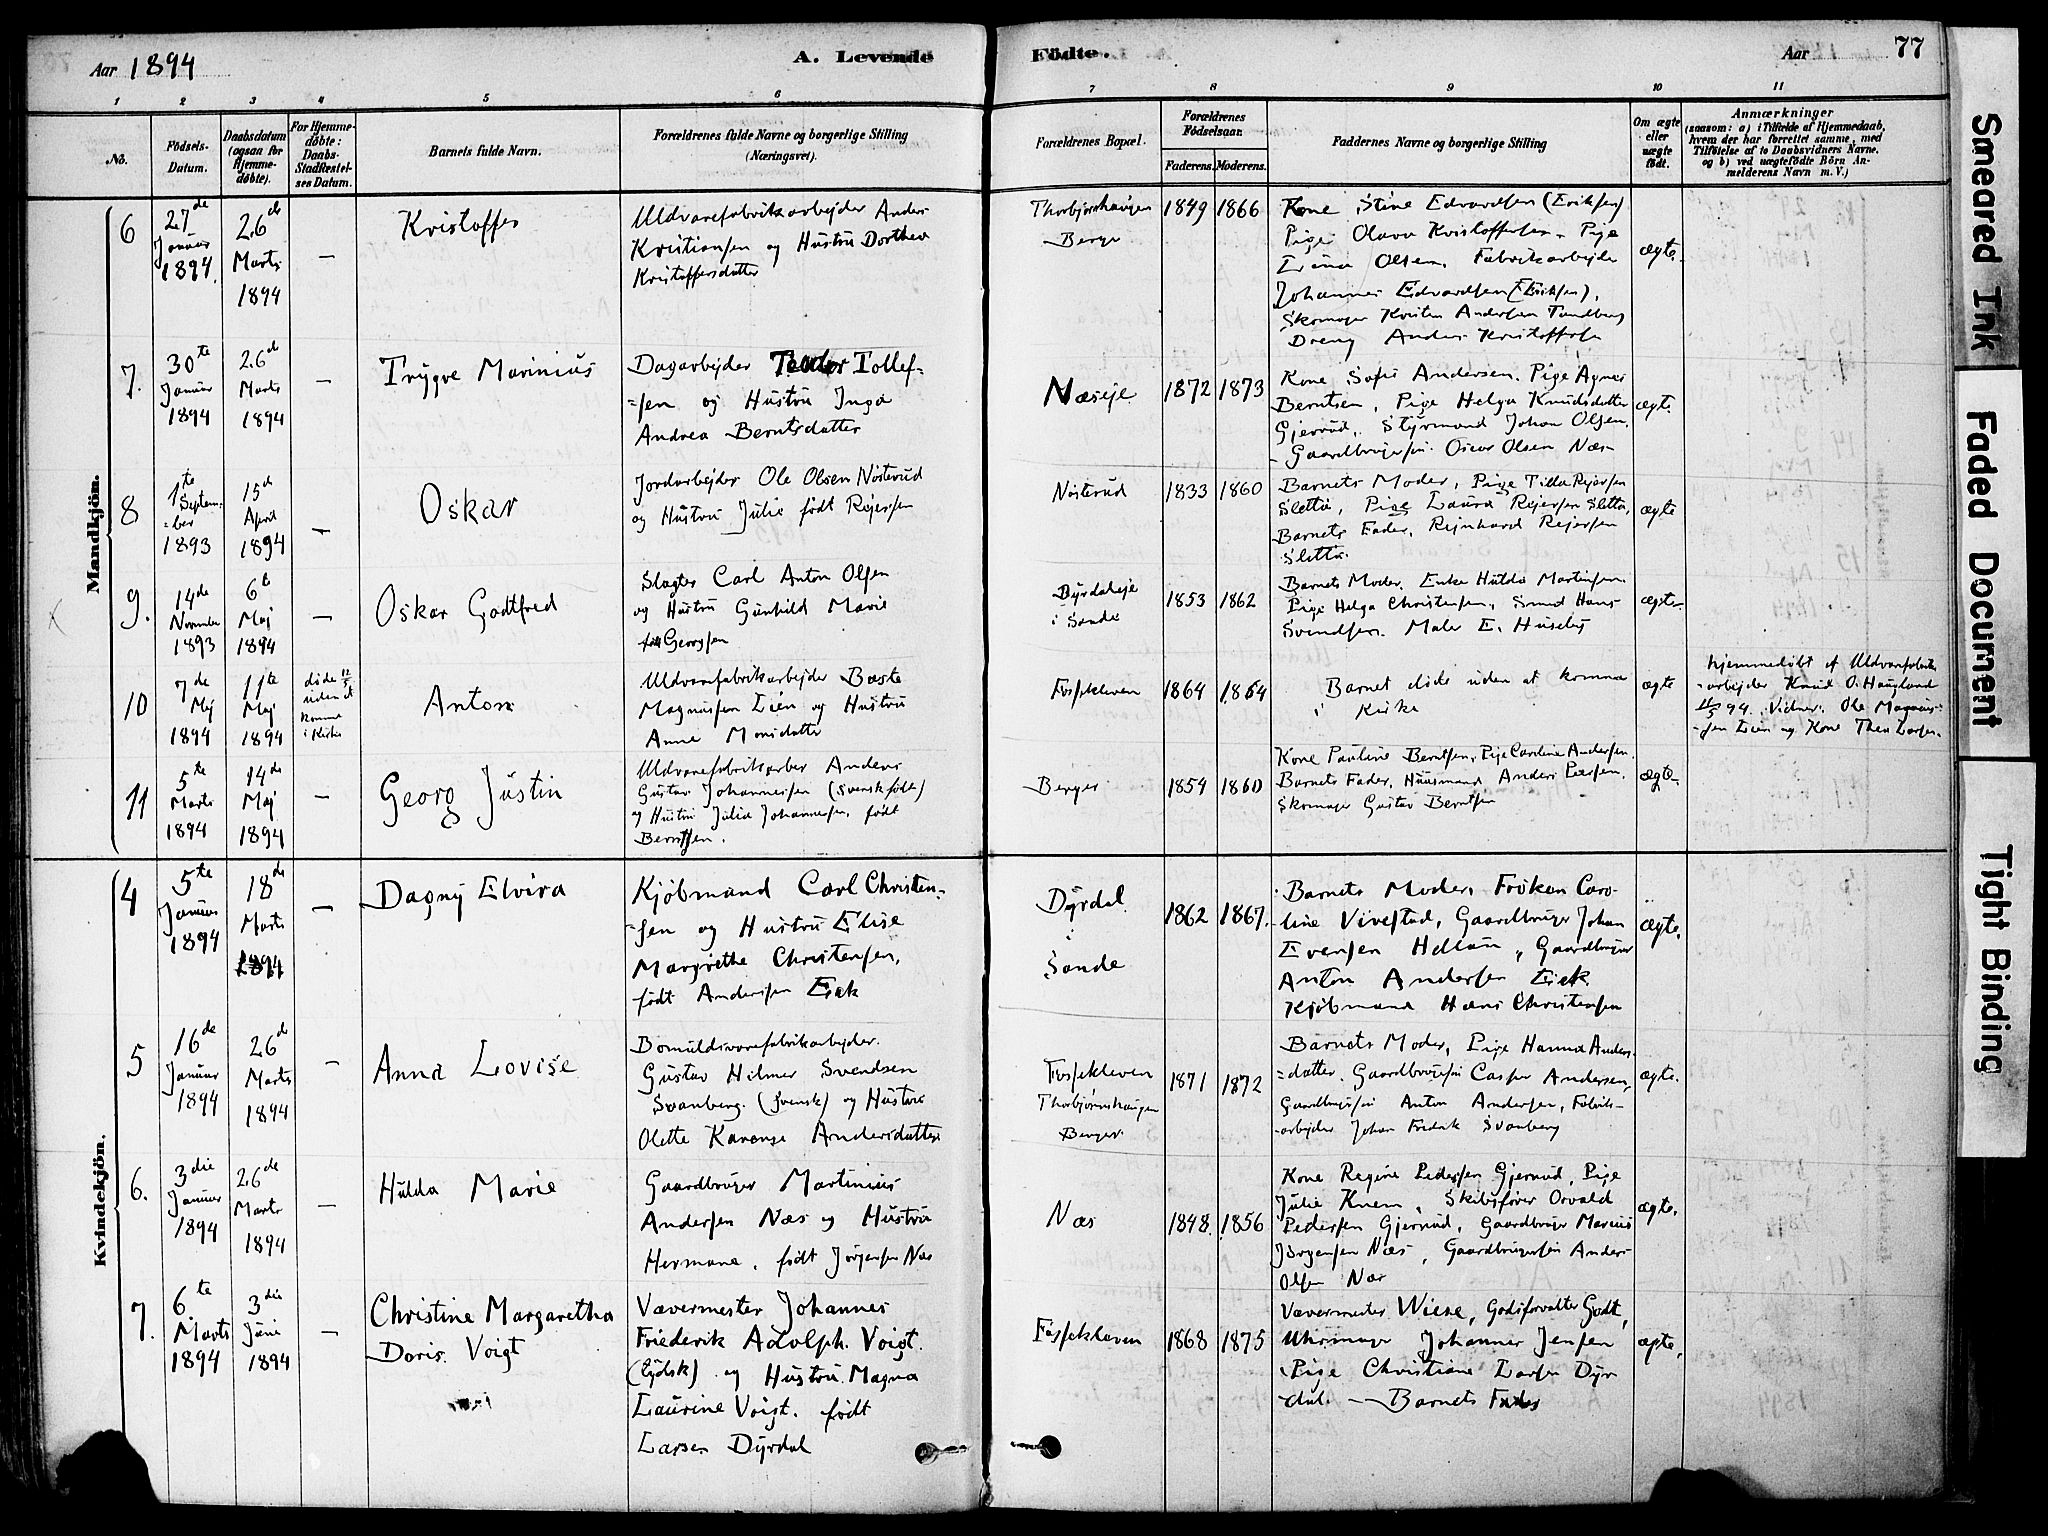 Aar 1894
A. Levende Födte.
Aar
77
1
2
3
4
5
6
7
8
9
10
11
No.
Födsels-
Datum.
Daabsdatum
(ogsaa for
Hjemme-
döbte).
For Hjemme-
döbte:
Daabs-
Stadfæstel-
ses Datum.
Barnets fulde Navn.
Forældrenes fulde Navne og borgerlige Stilling
(Næringsvei).
Forældrenes Bopæl.
Forældrenes
Födselsaar.
Faderens.
Moderens.
Faddernes Navne og borgerlige Stilling
Om ægte
eller
uægte
födt.
Anmærkninger
(saasom: a) i Tilfælde af Hjemmedaab,
hvem der har forrettet samme, med
Tilföielse af to Daabsvidners Navne,
og b) ved uægtefödte Börn An-
melderens Navn m. V.)
Mandkjön.
6
27de
Januar
1894.
26de
Marts
1894
—
Kristoffer
Uldvarefabrikarbejder Anders
Kristiansen og Hustru Dorthea
Kristoffersdatter
Thorbjørnshaugen
Berger
1849
1866
Kone Stine Edvardsen (Eriksen)
Pige Olava Kristoffersen, Pige
Olsen, Fabrikarbejder
Johannes Edvardsen (Eriksen),
Skomager Kristen Andersen Tandberg
Dreng Anders Kristoffersen
ægte.
7.
30te
Januar
1894
26de
Marts
1894
—
Trygve Marinius
Dagarbejder Teodor Tollef-
=sen og Hustru Inga
Andrea Berntsdatter
Næseje
1872
1873
Kone Sofie Andersen. Pige Agnes
Berntsen, Pige Helga Knudsdatter
Gjerrud, Styrmand Johan Olsen,
Gaardbrugersøn Oscar Olsen Næs
ægte
8
1te
Septem-
=ber
1893
15de
April
1894
—
Oskar
Jordarbejder Ole Olsen Nösterud
og Hustru Julie født Rejersen
Nösterud
1833
1860
Barnets Moder, Pige Tilla Rejersen
Sletta, Pige Laura Rejersen Sletta,
Barnets Fader, Rejnhard Rejersen
Sletta.
ægte
9.
14de
November
1893
6te
Maj
1894
—
Oskar Godtfred
Slagter Carl Anton Olsen
og Hustru Gunhild Marie
født Georgsen
Dyrdaleje
i Sande
1853
1862
Barnets Moder. Enke Hulda Martinsen
Pige Helga Christensen, Smed Hans
Svendsen. Maler E. Huseby
ægte
10
7de
Maj
1894
11te
Maj
1894
døde 12/5
uden at
komme
i Kirke
Anton
Uldvarefabrikarbejder Bæste
Magnussen Lien og Hustru
Anne Monsdatter
Fossekleven
1864
1864
Barnet døde uden at komme
i Kirke
ægte
Hjemmedøbt af Uldvarefabrik-
-arbejder Knud O. Haugland
11/5 94. Vidner. Ole Magnus-
sen Lien og Kone Thea Larsen.
11
5te
Marts
1894
14de
Maj
1894
—
Georg Justin
Uldvarefabrikarber Anders
Gustav Johannessen (svenskfødt)
og Hustru Julia Johannessen, født
Berntsen.
Berger
1854
1860
Kone Pauline Berntsen, Pige Caroline Andersen
Barnets Fader, Huusmand Anders Larsen,
Skomager Gustav Berntsen
ægte
Kvindekjön.
4
5te
Januar
1894
18de
Marts
1894
—
Dagny Elvira
Kjöbmand Carl Christen-
=sen og Hustru Elise
Margrethe Christensen,
født Andersen Eek
Dyrdal
i
Sande
1862
1867.
Barnets Moder, Fröken Caro-
line Vivestad, Gaardbruger Johan
Evensen Helland, Gaardbruger
Anton Andersen Eek,
Kjöbmand Hans Christensen
ægte.
5
16de
Januar
1894
26de
Marts
1894
—
Anna Lovise
Bomuldsvarefabrikarbejder
Gustav Hilmer Svendsen
Svanberg. (svensk) og Hustru
Olette Karense Andersdatter
Fossekleven
Thorbjørnshaugen
Berger
1871
1872
Barnets Moder, Pige Hanna Anders-
=datter, Gaardbrugersøn Casper Andersen,
Gaardbrugersøn Anton Andersen, Fabrik-
-arbejder Johan Fredrik Svanberg
ægte.
6.
3die
Januar
1894
26de
Marts
1894
—
Hulda Marie
Gaardbruger Martinius
Andersen Næs og Hustru
Hermane, født Jörgensen Næs
Næs
1848.
1856
Kone Regine Pedersen Gjerrud, Pige
Julie Knem, Skibsfører Osvald
Pedersen Gjerrud, Gaardbruger Marius
Jörgensen Næs, Gaardbrugersøn Anders
Olsen Næs
ægte.
7.
6te
Marts
1894
3die
Juni
1894
—
Christine Margaretha
Doris Voigt
Vævermester Johannes
Friederik Adolph Voigt.
(tydsk) og Hustru Magna
Laurine Voigt. født
Larsen Dyrdal
Fossekleven
1868
1875
Vævermester Wiese, Godsforvalter Godt,
Uhrmager Johannes Jensen
Pige Christiane Larsen Dyr-
dal. — Barnets Fader
ægte.
Smeared Ink
Faded Document
Tight Binding